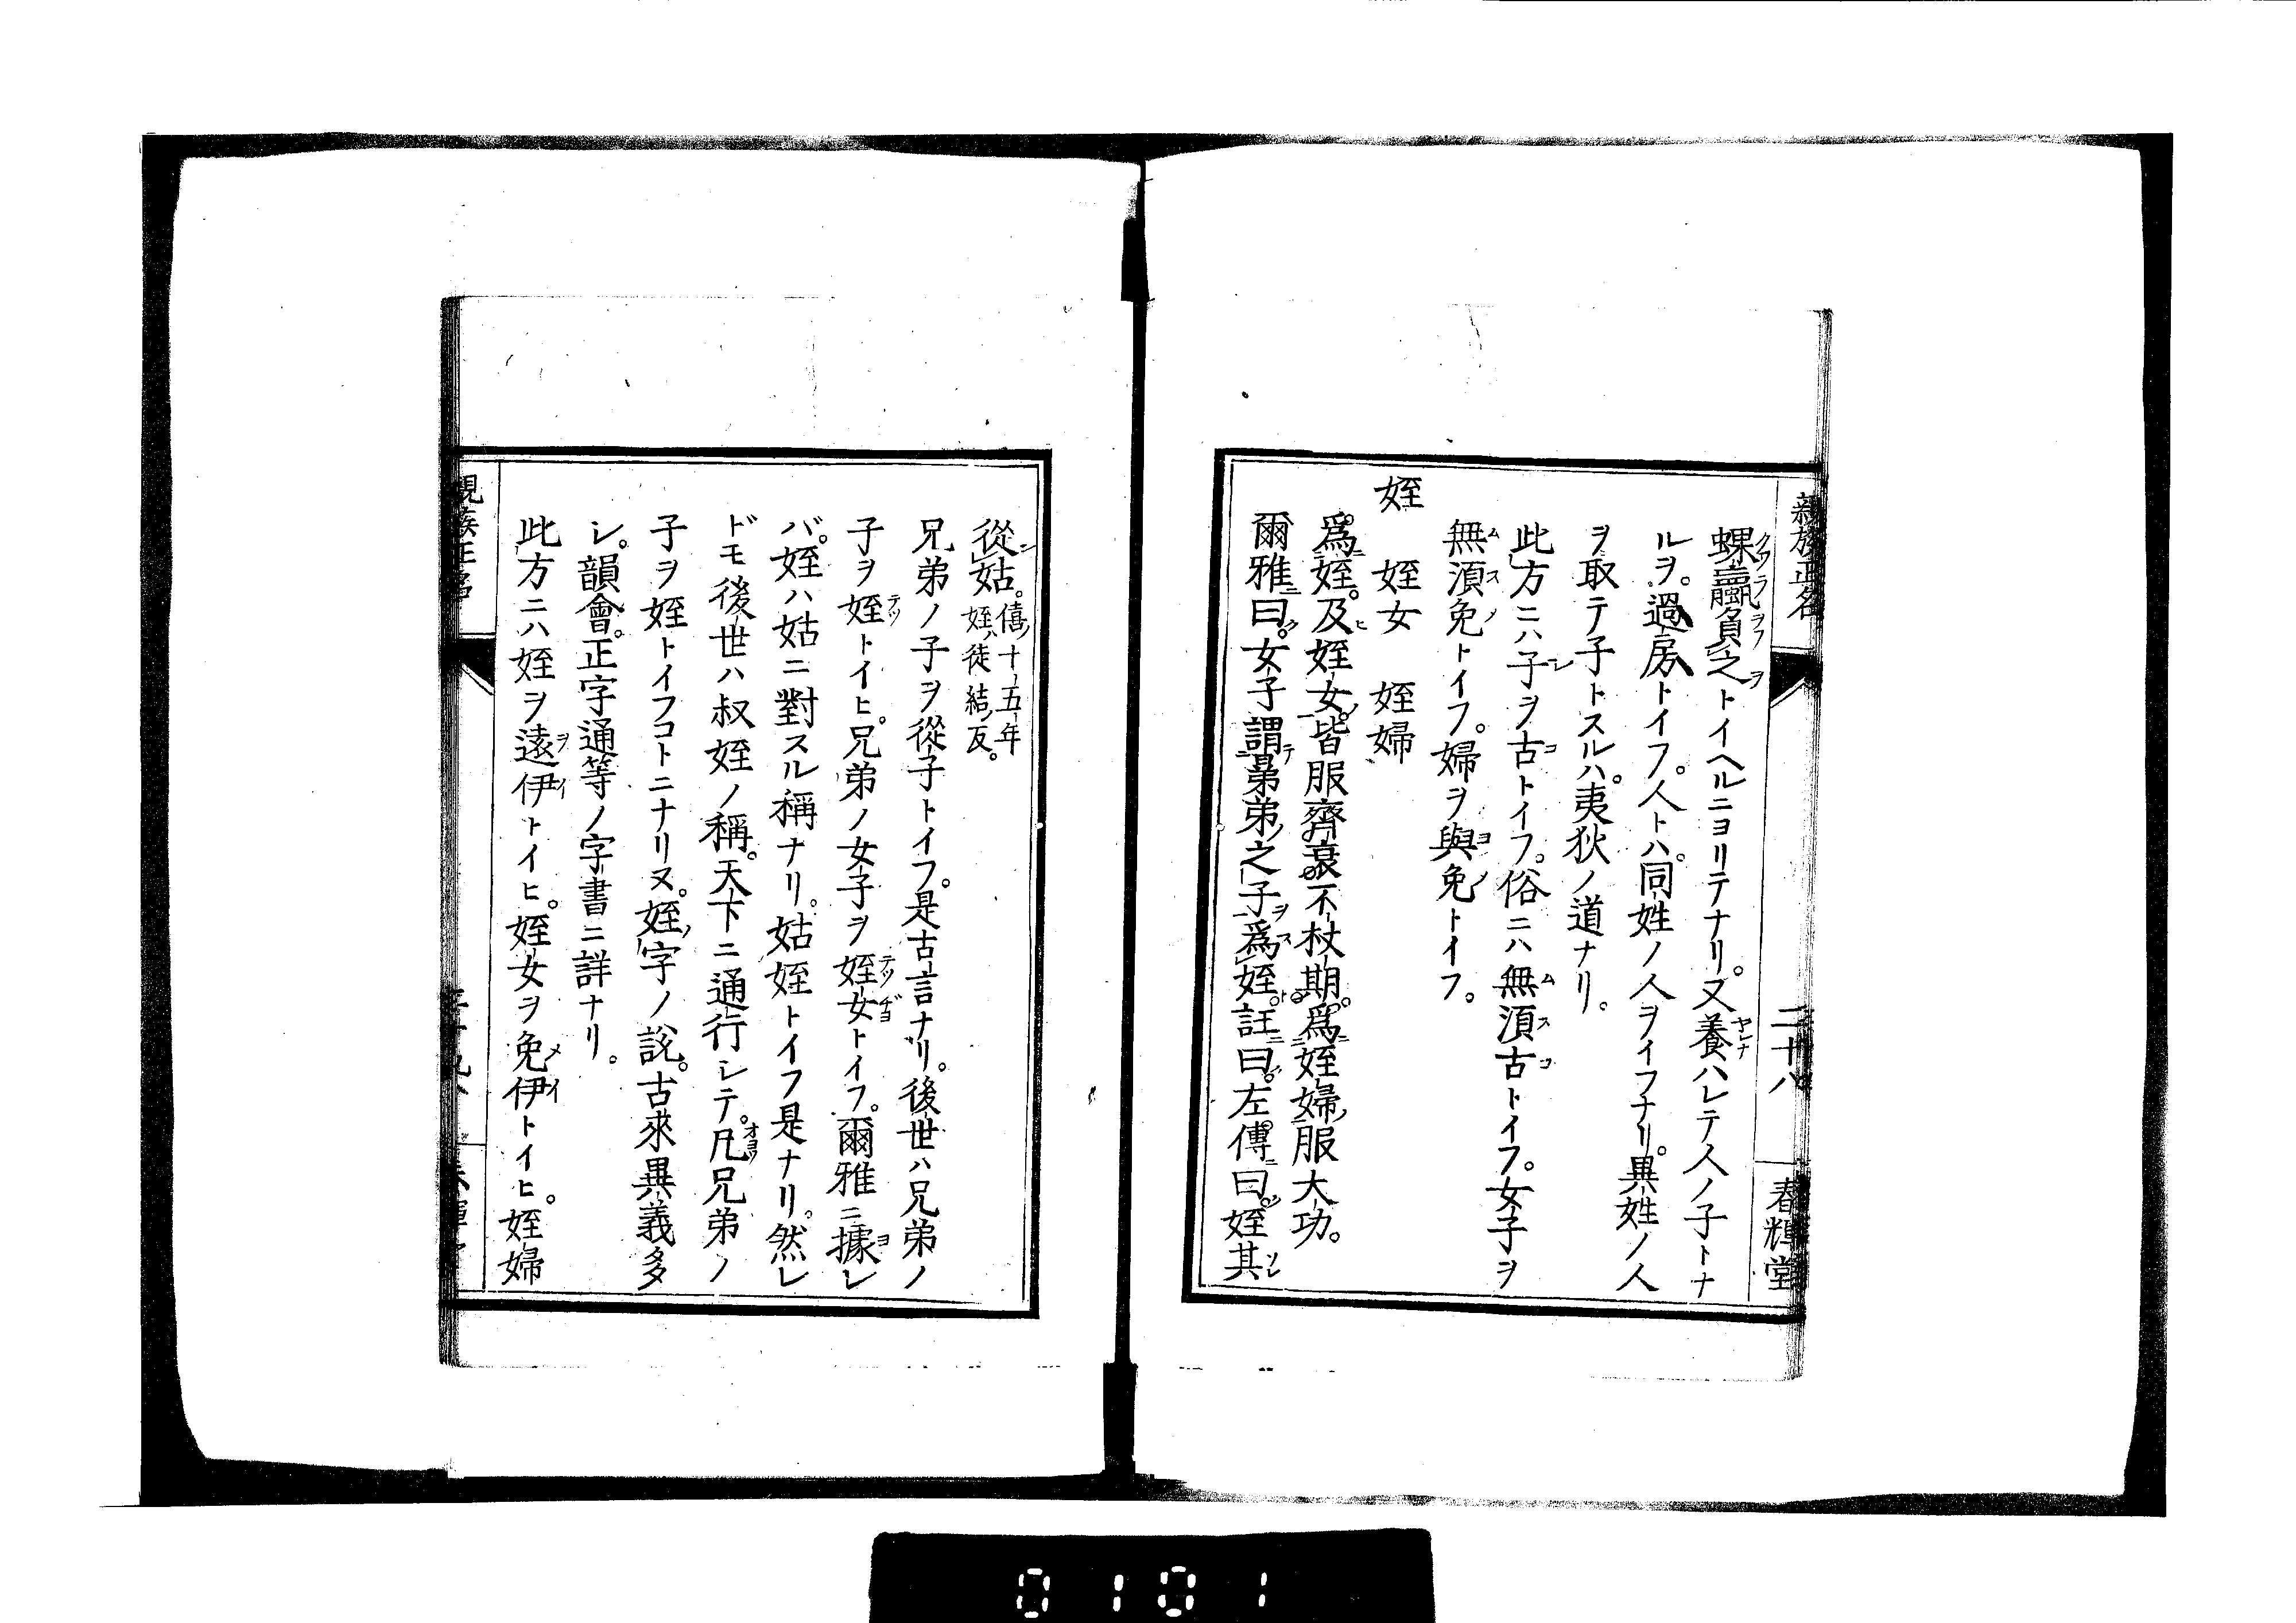 親族正名 二十八 春輝堂
蜾蠃負之トイヘルニヨリテナリ。又養ハレテ人ノ子トナ
ルヲ。過房トイフ。人トハ。同姓ノ人ヲイフナリ。異姓ノ人
ヲ取テ子トスルハ。夷狄ノ道ナリ。
此方ニハ子ヲ古トイフ。俗ニハ無須古トイフ。女子ヲ
無須免トイフ。婦ヲ與免トイフ。
姪 姪女 姪婦
爲姪。及姪女。皆服齊衰不杖期。爲姪婦服大功。
爾雅曰。女子謂晜弟之子爲姪。註曰。左傳曰。姪其
從姑。僖十五年姪徒結反。
兄弟ノ子ヲ從子トイフ。是古言ナリ。後世ハ兄弟ノ
子ヲ姪トイヒ。兄弟ノ女子ヲ姪女トイフ。爾雅ニ據レ
バ。姪ハ姑ニ對スル稱ナリ。姑姪トイフ是ナリ。然レ
ドモ後世ハ叔姪ノ稱。天下ニ通行シテ。凡兄弟ノ
子ヲ姪トイフコトニナリヌ。姪字ノ說。古來異義多
シ。韻會。正字通等ノ字書ニ詳ナリ。
此方ニハ姪ヲ遠伊トイヒ。姪女ヲ免伊トイヒ。姪婦
親族正名
0101